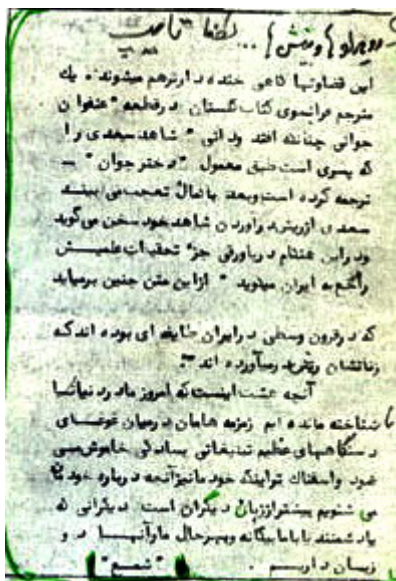 این قضاوتها گاهی خنده دارترهم میشوند. یك
مترجم فرانسوی کتاب گلستان درقطعه "عنفوان
جوانی چنانکه افتد ودانی" شاهد سعدی را
که پسری است طبق معمول "دخترجوان"
ترجمه کرده است وبعد باکمال تعجب می بیند
سعدی ازریش درآوردن شاهد خود سخن می گوید
ودراین هنگام درپاورقی جزء تحقیقات علمیش
راجع به ایران میگوید "ازاین متن چنین برمیاید
که درقرون وسطی درایران طایفه ای بوده اند که
زنانشان ریش درمیآورده اند".
آنچه هست اینست که امروز مادردنیا
ناشناخته مانده ایم زمزمه هامان درمیان غوغای
دستگاههای عظیم تبلیغاتی بسادگی خاموش می
شود واسفناك تراینکه خود مانیزآنچه درباره خود
می شنویم بیشتراززبان دیگران است دیگرانی که
یادشمنند یاباما بیگانه وبهرحال ماراآنها
زیان داریم. "شمع"